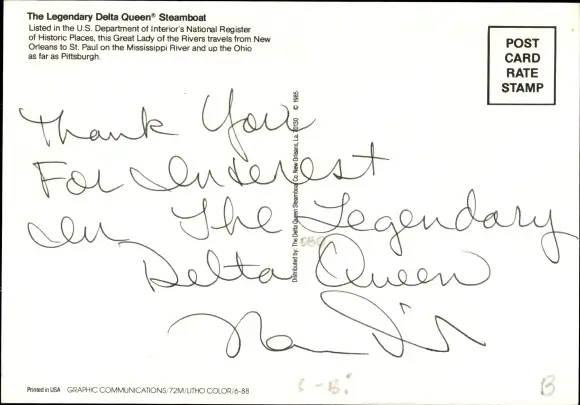 The Legendary Delta Queen® Steamboat
Listed in the U.S. Department of Interior's National Register
of Historic Places, this Great Lady of the Rivers travels from New
Orleans to St. Paul on the Mississippi River and up the Ohio
as far as Pittsburgh.
POST
CARD
RATE
STAMP
Thank You
For Interest
In The Legendary
Delta Queen
Distributed by: The Delta Queen Steamboat Co. New Orleans, La. 70130 © 1985
Printed in USA GRAPHIC COMMUNICATIONS/72M/LITHO COLOR/6-88
B